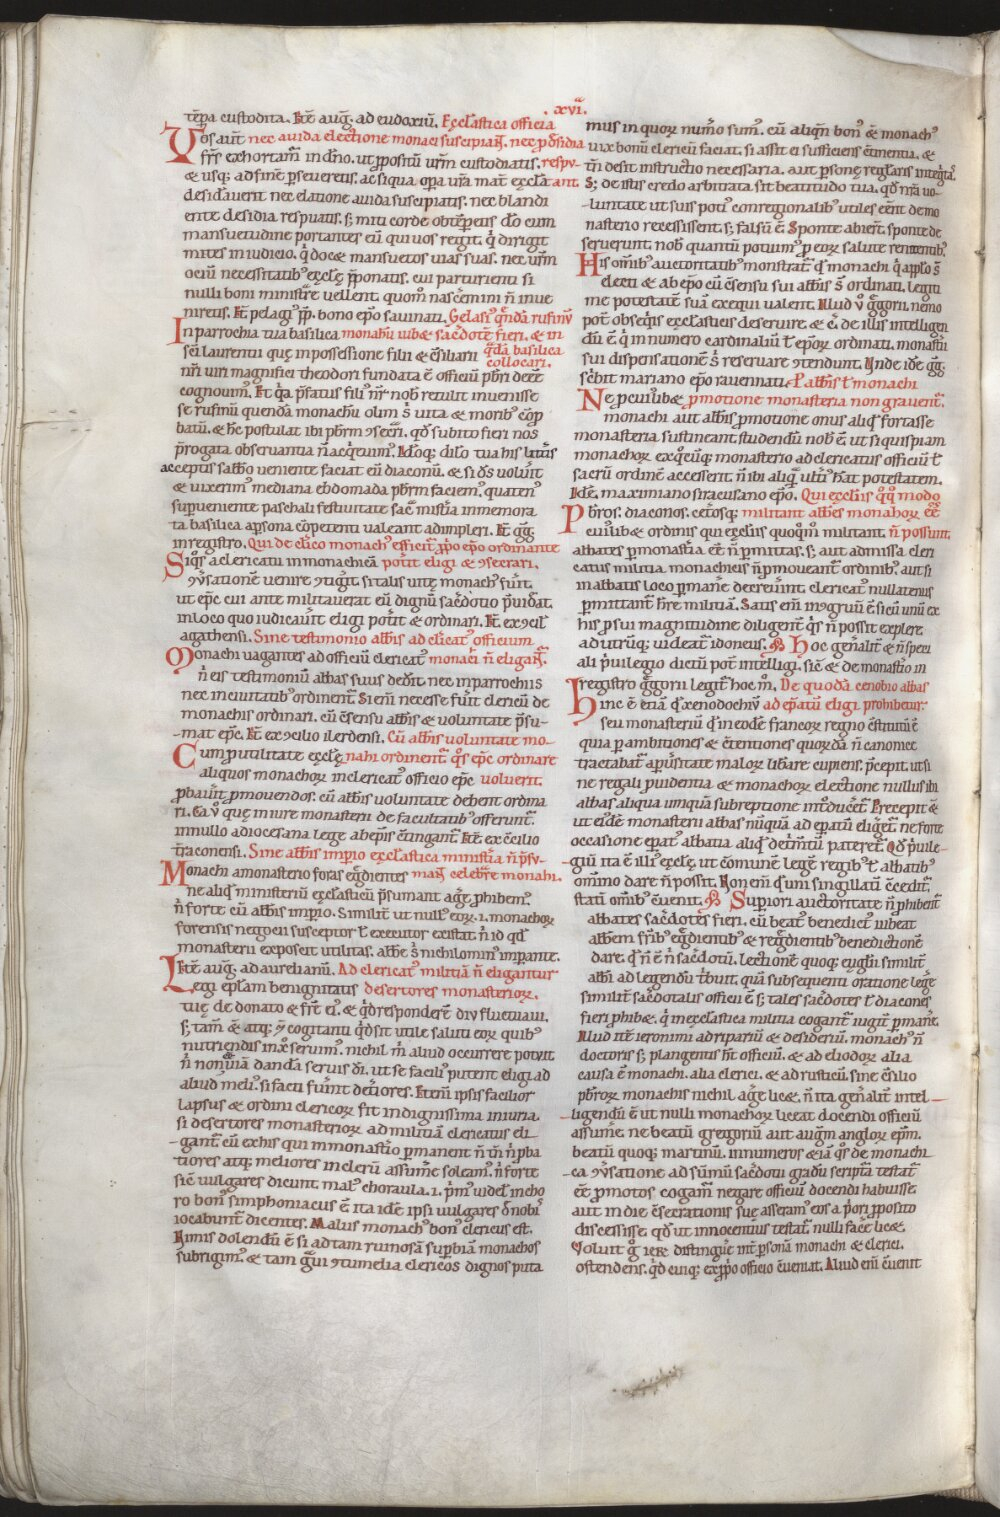 .xvi.
tẽpa custodita. Itẽ aug̃. ad eudoxiũ. Ecclẽsastica officia
Vos aut̃ nec auida electione monaci suscipiant. nec p̃ desidia
frẽs exhortam̃ in dñõ. ut ppositũ urm̃ custodiatis. respu-
& usq; ad finẽ pseueretis. ac siqua opa ura mat̃ ecclã ant.
desidauerit nec elatione auida suscipiatis. nec blandi
ente desidia respuatis. s; miti corde obtẽpetis dõ cum
mansuetudine portantes eũ qui uos regit. q̇ dirigit
mites in iudicio. q̇ docet mansuetos uias suas. nec urm̃
ociũ necessitatib' ecclę p̃ponatis. cui parturienti si
nulli boni ministrẽ uellent. quom̃ nascẽmini ñ inue
niretis. Itẽ pelagi' pp̃. bono ep̃o sauinati. Gelasi' quẽdã rufinũ
In parrochia tua basilica monachũ iubet sac̃dotẽ fieri. & in
sc̃i laurentii quę in possessione filii & c̃siliarii quadã basilica
collocari.
nr̃i uiri magnifici theodori fundata ẽ officiũ pb̃ri deẽe
cognouim'. Et q̇a p̃fatus fili' nr̃ nob̃ retulit inuenisse
se rufinũ quendã monachũ olim s̃ uita & morib' cõp
batũ. & hẽ postulat ibi pb̃rm 9secr̃i. qd̃ subito fieri nos
p̃rogata obseruantia ñ acq̇euim'. Idõq; dilõ tua his laturis
acceptis sabbõ ueniente faciat eũ diaconũ. & si ds̃ uolũit
& uixerim' mediana ebdomada pb̃rm faciem'. quaten'
supueniente paschali festiuitate sac̃ mistĩa inmemora
ta basilica apsona cõpetenti ualeant adimpleri. Itẽ gg̃.
in registro. Qui de cl̃ico monach' efficit̃ ppõ ep̃o ordinante
Siq̇s a clericatu in monachicã potit eligi & 9secrari.
9ũsationẽ uenire 9tiġit. si talis uitę monach' fũit.
ut ep̃c cui ante militauerat eũ dignũ sac̃dotio p̃uidat.
in loco quo iudicauit̃ eligi potĩt & ordinari. Itẽ ex 9cil̃
agathensi. Sine testimonio abb̃is ad cl̃icat' officium
Monachi uagantes ad officiũ clericat' monaci ñ eligant̃.
ñ eis testimoniũ abbas suus dedit̃. nec in parrochiis
nec in ciuitatib' ordinent̃. Si eni̇̃ necesse fũit clericũ de
monachis ordinari. cũ c̃sensu abb̃is & uoluntate p̃su-
mat ep̃c. Itẽ ex 9cilio ilerdensi. Cũ abb̃is uoluntate mo-
Cum p utilitate ecclę nahi ordinent̃ q̇s ep̃c ordinare
aliquos monachor in clericat' officio ep̃c uoluerit.
pbauit̃ pmouendos. cũ abb̃is uoluntate debent ordina
ri. Ea ũ quę in iure monasterii de facultatib' offerunt̃.
in nullo a diocesana lege ab ep̃is c̃tingant̃. Itẽ ex c̃cilio
t̃raconensi. Sine abb̃is impio ecclẽsastica ministĩa ñ p̃su-
Monachi a monasterio foras eg̃dientes mant celebrẽ monahi.
ne aliq̇ ministeriũ ecclẽsasticũ p̃sumant ag̃e. phibem'.
ñ forte cũ abb̃is impio. Similit̃ ut null' eor. i. monachor
forensis negocii susceptor t̃ executor existat. ñ id qd̃
monasterii exposcit utilitas. abbẽ s̃ nichilomin' impante.
Itẽ aug̃. ad aurelianũ. Ad clericat' militiã ñ eligantur
Legi ep̃lam benignitatis desertores monasterior.
tuę de donato & fr̃e ei'. & qd̃ responderẽ diu fluctuaui.
s; tam̃ & atq; & cogitanti qd̃ sit utile saluti eor quib'
nutriendis in xp̃o seruim'. nichil m̃ aliud occurrere potuit
ñ non uiã dandã seruis dĩ. ut se facili' putent eligi ad
aliud meli'. si facti fũint detĩores. Et enĩ ipsis facilior
lapsus & ordini clericor fit indignissima iniuria.
si desertores monasterior ad militiã clericatus eli-
gant̃. cũ ex his qui in monastĩo pmanent ñ tm̃ ñ pba
tiores atq; meliores in clerũ assumẽ soleam'. ñ forte
sic̃ uulgares dicunt mal' choraula. i. pm' uidel̃ in cho
ro bon' simphoniacus ẽ ita idẽ ipsi uulgares d̃ nobi'
iocabunt̃ dicentes. Malus monach' bon' clericus est.
Nimis dolendũ ẽ si ad tam ruinosã supbiã monachos
subrigim'. & tam g̃ui 9tumelia clericos dignos puta
mus in quor num̃o sum'. cũ aliqñ bon' & monach'
uix bonũ clericũ faciat. si assit ei sufficiens c̃tinentia. &
tm̃ desit instructio necessaria. aut psonę regĩaris integrĩtas.
S; de istis credo arbitrata sit beatitudo tua. qd̃ nr̃a uo-
luntate ut suis poti' conregionalib' utiles eẽnt de mo
nasterio recessissent. s; falsũ ẽ. Sponte abiert̃. sponte de
seruerunt. nob̃ quantũ potuim' p eor salute renitentib'.
His om̃ib' auctoritatib' monstrat̃ q̇ monachi q̇ a pp̃lo s̃
electi & ab ep̃o cũ c̃sensu sui abb̃is s̃ ordinati. legiti
me potestatẽ suã exequi ualent. Illud ũ g̃gorii. nemo
pot̃ obseq̇is ecclẽsasticis deseruire. & c̃. de illis intelligen
dũ ẽ q̇ in numero cardinaliũ t̃ ep̃or ordinati. monastĩi
sui dispensationẽ s̃ reseruare 9tendunt. Unde idẽ gg̃.
sc̃bit mariano ep̃o rauennati. P abb̃is t̃ monachi
Ne p cuilibẽ pmotione monasteria non grauent̃.
monachi aut abb̃is pmotione onus aliq̇ fortasse
monasteria sustineant. studendũ nob̃ ẽ ut si quispiam
monachor ex q̇cũq; monasterio ad clericatus officiũ t̃
sacrũ ordinẽ accesserit. ñ ibi aliq̇ ult̃i' hẽat potestatem.
Idẽ. maximiano siracusano ep̃o. Qui ecclẽiis q̇q̇ modo
Pbr̃os. diaconos. cẽtosq; militant abb̃es monahor eẽe
cuilibẽ ordinis qui ecclẽiis quoq̇m' militant. ñ possunt.
abbates p monastĩa eẽe ñ pmittas. s; aut admissa cleri
catus militia monachicis ñ pmoueant̃ ordinib'. aut si
in abbatis loco pmanẽ decreuit̃. clericat' nullatenus
pmittant̃ hẽre militiã. Satis eni̇̃ in9gruũ ẽ si cũ unũ ex
his p sui magnitudine diligent̃ q̇s ñ possit explere.
ad utrũq; uideat̃ idoneus. Hoc gen̄alit̃ & ñ speci
ali p̃uilegio dictũ pot̃ intelligi. sic̃ & de monastĩo in
registro g̃gorii legit̃ hoc m̃. De quodã cenobio abbas
Hinc ẽ etiã q̇ xenodochiũ ad ep̃atũ eligi prohibetur.
seu monasteriũ q̇ in eodẽ francor regno c̃stitutũ ẽ
quia p ambitiones & c̃tentiones quordã ñ canonicẽ
tractabat̃ a puersitate malor lib̃are cupiens. p̃cepit ut si
ne regali puidentia & monachor electione nullus ibi
abbas aliqua umquã subreptione int̃ducet̃. P̃recepit &
ut eidẽ monasterii abbas nũquã ad ep̃atũ eliget̃. ne forte
occasione ep̃at' abbatia aliq̇ det̃mtũ pateret̃. Qd̃ p̃uile-
giũ ita ẽ illi' ecclę. ut cõmunẽ legẽ regib' t̃ abbatib'
om̃ino dare ñ possit. Non eni̇̃ q̇ uni singillatũ c̃cedit̃.
statĩ om̃ib' c̃uenit. Supiori auctoritate ñ phibent̃
abbates sac̃dotes fieri. cũ beat' benedict' iubeat
abbem frĩb' eg̃dientib' & reg̃dientib' benedictionẽ
dare. q̇ ñ ẽ ñ sac̃dotũ. lectionẽ quoq; euglĩi similit̃
abbi ad legendũ t̃buit. quã subsequenti oratione leg̃e
similit̃ sac̃dotalis officii ẽ. s; tales sac̃dotes t̃ diaconos
fieri phibẽ. q̇ in ecclẽsastica militia cogant̃ iugit̃ pmanẽ.
Illud itẽ ieronimi ad ripariũ & desideriũ. monach' ñ
doctoris s; plangentis hẽt officiũ. & ad eliodor alia
causa ẽ monachi. alia clerici. & ad rusticũ. sine c̃silio
pb̃ror monachis nichil ag̃e licẽ. ñ ita gen̄alit̃ intel-
ligendũ ẽ ut nulli monachor liceat docendi officiũ
assumẽ. ne beatũ gregoriũ aut augm̃ anglor ep̃m.
beatũ quoq; martinũ. innumeros & iã q̇s de monachi-
ca 9ũsatione ad sũmũ sac̃dotii gradũ scripta testant̃
eẽe pmotos cogam' negare officiũ docendi habuisse.
aut in die c̃secrationis suę asseram' eos a p̃ori pposito
discessisse. qd̃ ut innocentius testat̃ nulli facẽ licẽ.
Voluit g̊ ier̃ distinguẽ int̃ psonã monachi & clerici.
ostendens. q̇d cuiq; ex ppõ officio c̃ueniat. Aliud eni̇̃ c̃uenit